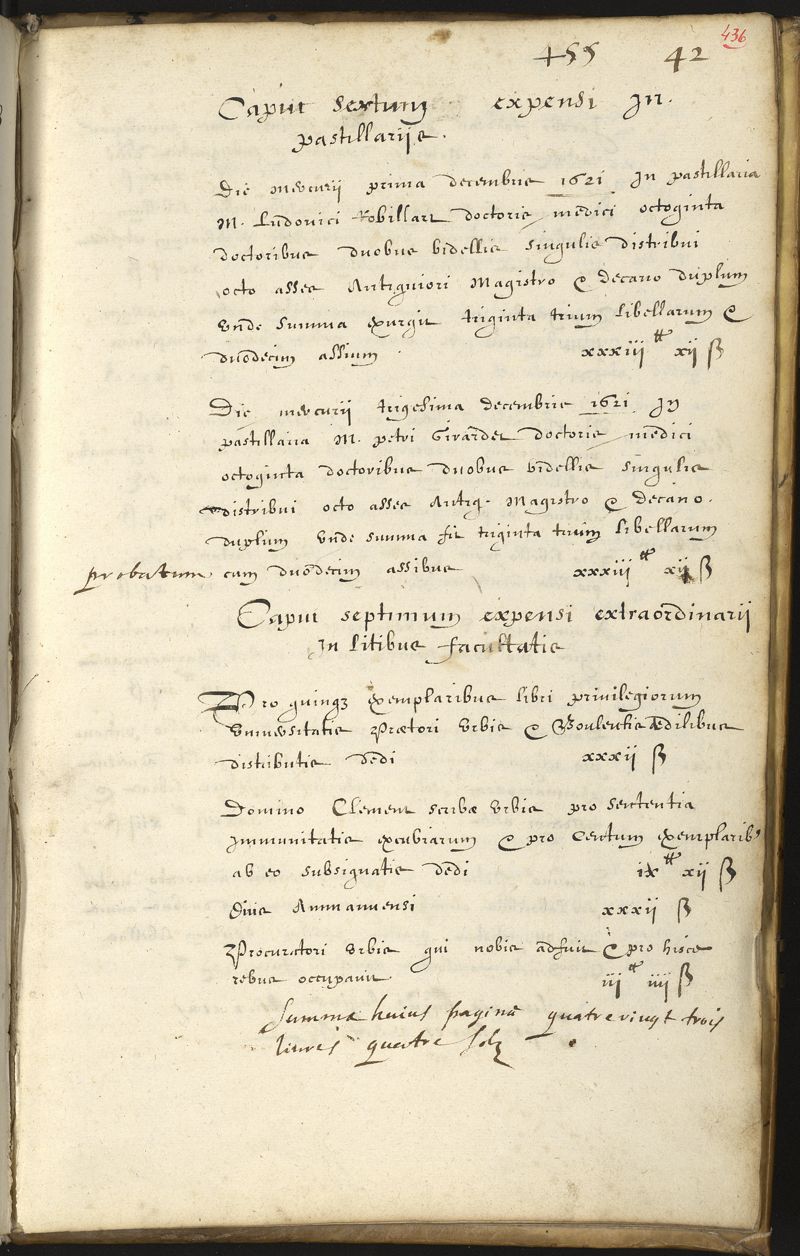 436
455 42
Caput sextum expensi In
pastillariis.
Die mercurii prima decembris 1621 In pastillaria
M. Ludovici Robillart doctoris medici octoginta
doctoribus duobus bidellis singulis distribui
octo asses Antiquiori Magistro & decano duplum
unde summa exurgit triginta trium libellarum &
duodecim assium. xxxiii tt xii ß
Die mercurii trigesima decembris 1621 In
pastillaria M. petri Girardet doctoris medici
octoginta doctoribus duobus bidellis singulis
distribui octo asses Antiq. Magistro & decano.
duplum unde summa fit triginta trium libellarum
probatum cum duodecim assibus xxxiii tt xii ß
Caput septimum expensi extraordinarii
In litibus facultatis
Pro quinqz exemplaribus libri privilegiorum
Universitatis Prætori Urbis & Ædilibus
distributis dedi xxxii ß
Domino Clement scribæ Urbis pro sententia
Immunitatis excubiarum & pro Centum exemplarib9
ab eo subsignatis dedi ix tt xii ß
xxxii ß
Procuratori Urbis qui nobis adfuit & pro hisce
rebus occupavit. iii tt iiii ß
Summa huius pagina quatre vingt trois
livres quatre solz